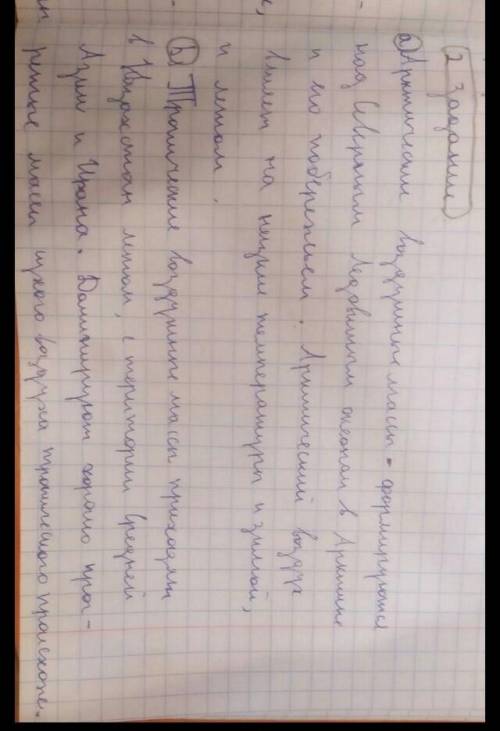 2 задание
а) Арктические воздушные массы - формируются
над Северным Ледовитым океаном в Арктике
и его побережьем. Арктический воздух
влияет на низкие температуры и зимой,
и летом.
b) Тропические воздушные массы приходят
в Казахстан летом, с територии Средней
Азии и Ирана. Доминируют хорошо прог-
ретые массы сухого воздуха тропического происхож-